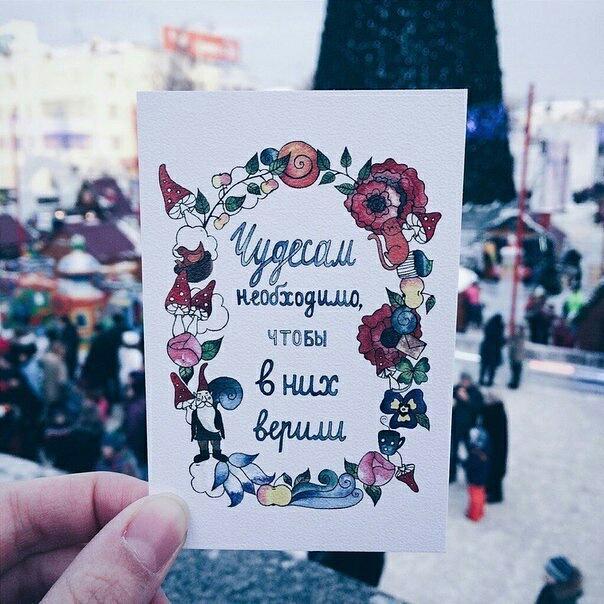 Чудесам
необходимо,
чтобы
в них
верили